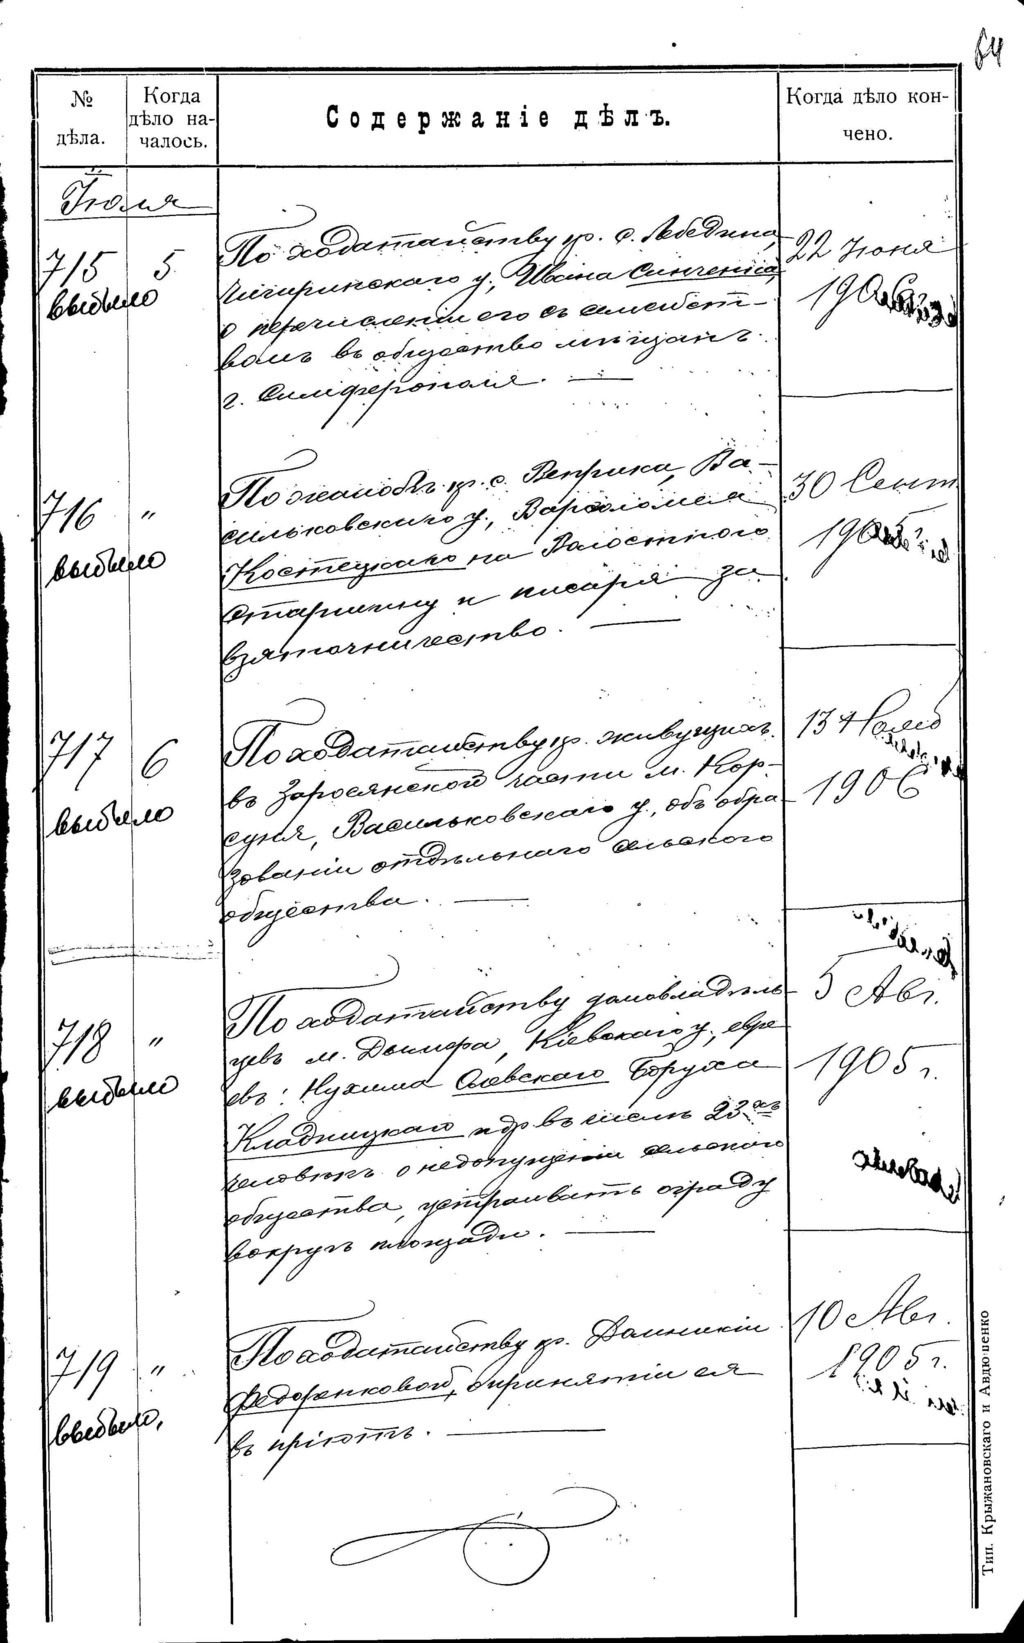 64
№ дѣла.
Когда дѣло началось.
Содержаніе дѣлъ.
Когда дѣло кончено.
Іюля
715 5 выбыло
По ходатайству кр. с. Лебедина,
Чигиринскаго у., Ивана Синченка,
о перечисленіи его съ семейст-
вомъ въ общество мѣщанъ
г. Симферополя. —
22 Іюня
190
716 " выбыло
По жалобѣ кр. с. Веприка, Ва-
сильковскаго у., Варфоломея
Костецкаго на Волостного
Старшину и писаря за
взяточничество. —
30 Сент
1905 г.
717 6 выбыло
По ходатайству кр. живущихъ
въ Заросянской части м. Кор-
суня, Васильковскаго у., объ обра-
зованіи отдѣльнаго сельскаго
общества. —
13
1906
718 " выбыло
По ходатайству домовладѣль-
цевъ м. Дымера, Кіевскаго у., евре-
евъ: Нухима Боруха
Кладницкаго и др. въ числѣ 23-хъ
человѣкъ о недопущеніи сельскаго
общества, устраивать ограду
вокругъ площади. —
5 Авг.
1905 г.
719 " выбыло,
По ходатайству кр. Домникіи
Федоренковой, о принятіи ея
въ пріютъ. —
10 Авг.
1905 г.
Тип. Крыжановскаго и Авдюшенко